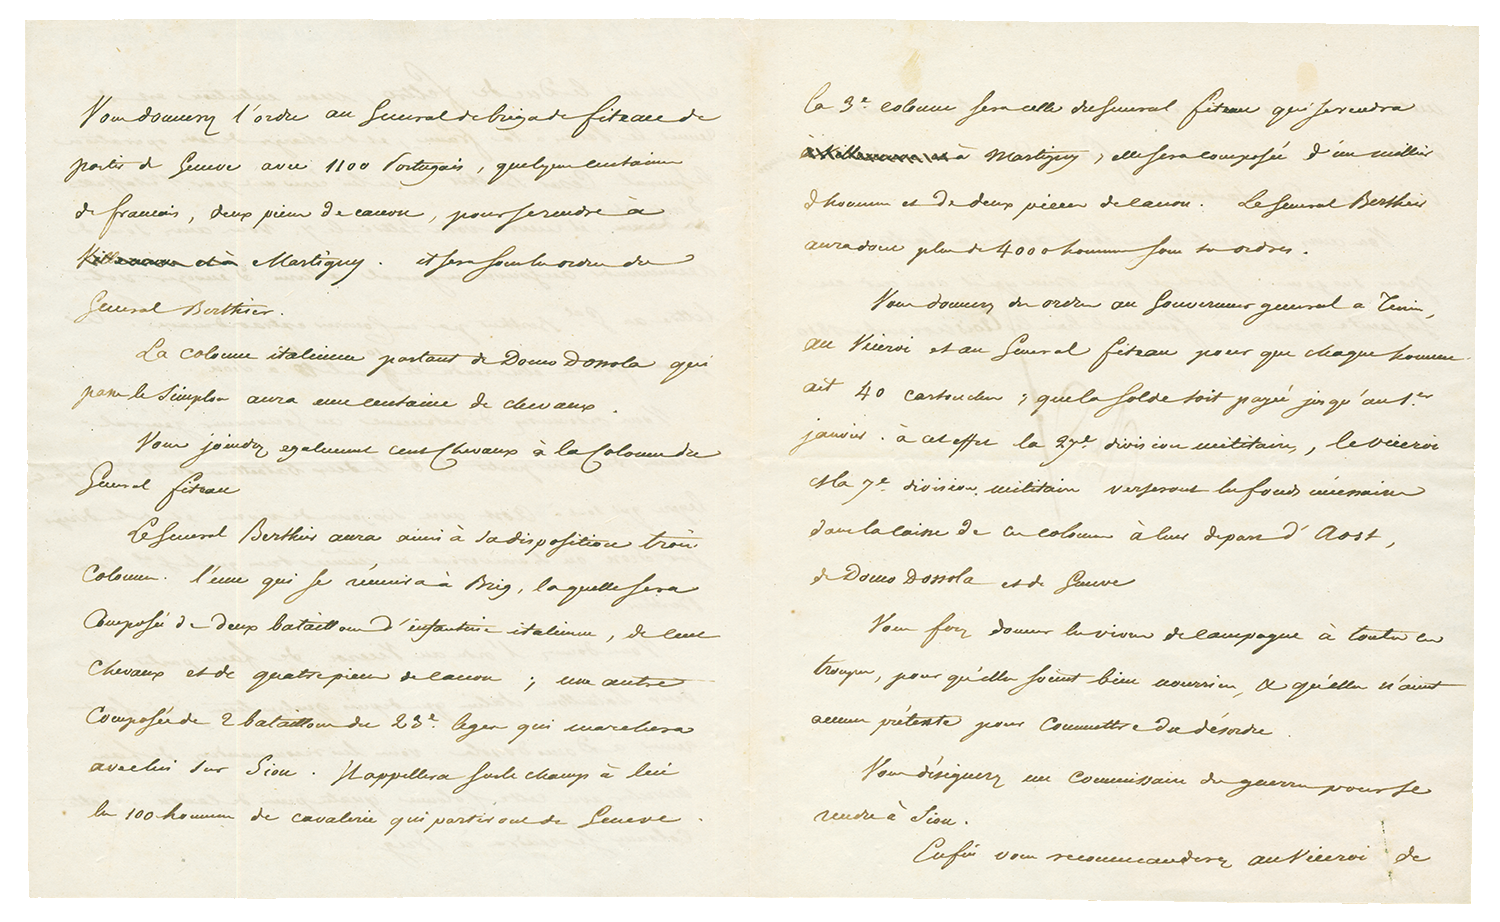 Vous donnerez l'ordre au General de brigade fiteau de
partir de Geneve avec 1100 Portugais, quelques centaines
de francais, deux pieces de canon, pour se rendre à
Martigny. il sera sous les ordres du
General Berthier.
La colonne italienne partant de Domo Dossola qui
passe le Simplon aura une centaine de chevaux.
Vous joindrez egalement cent Chevaux à la Colonne du
General fiteau
Le General Berthier aura ainsi à sa disposition trois
colonnes. l'une qui se réunira à Brig, laquelle sera
Composée de deux bataillons d'infanterie italienne, de cent
chevaux et de quatre pieces de canon ; une autre
Composée de 2 bataillons du 23e leger qui marchera
avec lui sur Sion. Il appellera sur le champ à lui
les 100 hommes de cavalerie qui partiront de Geneve.
la 3e colonne sera celle du General fiteau qui se rendra
à Martigny, elle sera composée d'un millier
d'hommes et de deux pieces de canon. Le General Berthier
aura donc plus de 4000 hommes sous ses ordres.
Vous donnerez des ordres au Gouverneur general a Turin,
au Viceroi et au General fiteau pour que chaque homme
ait 40 cartouches ; que la solde soit payée jusqu'au 1er
janvier. à cet effet la 27e division militaire, le viceroi
et la 7e division militaire verseront les fonds nécessaires
dans la caisse de ces colonnes à leur depart d'Aost,
de Domo dossola et de Geneve
Vous ferez donner les vivres de campagne à toutes ces
troupes, pour qu'elles soient bien nourries, & qu'elles n'aient
aucun prétexte pour Commettre du désordre.
Vous désignerez un commissaire des guerres pour se
rendre à Sion.
Enfin vous recommanderez au Viceroi de